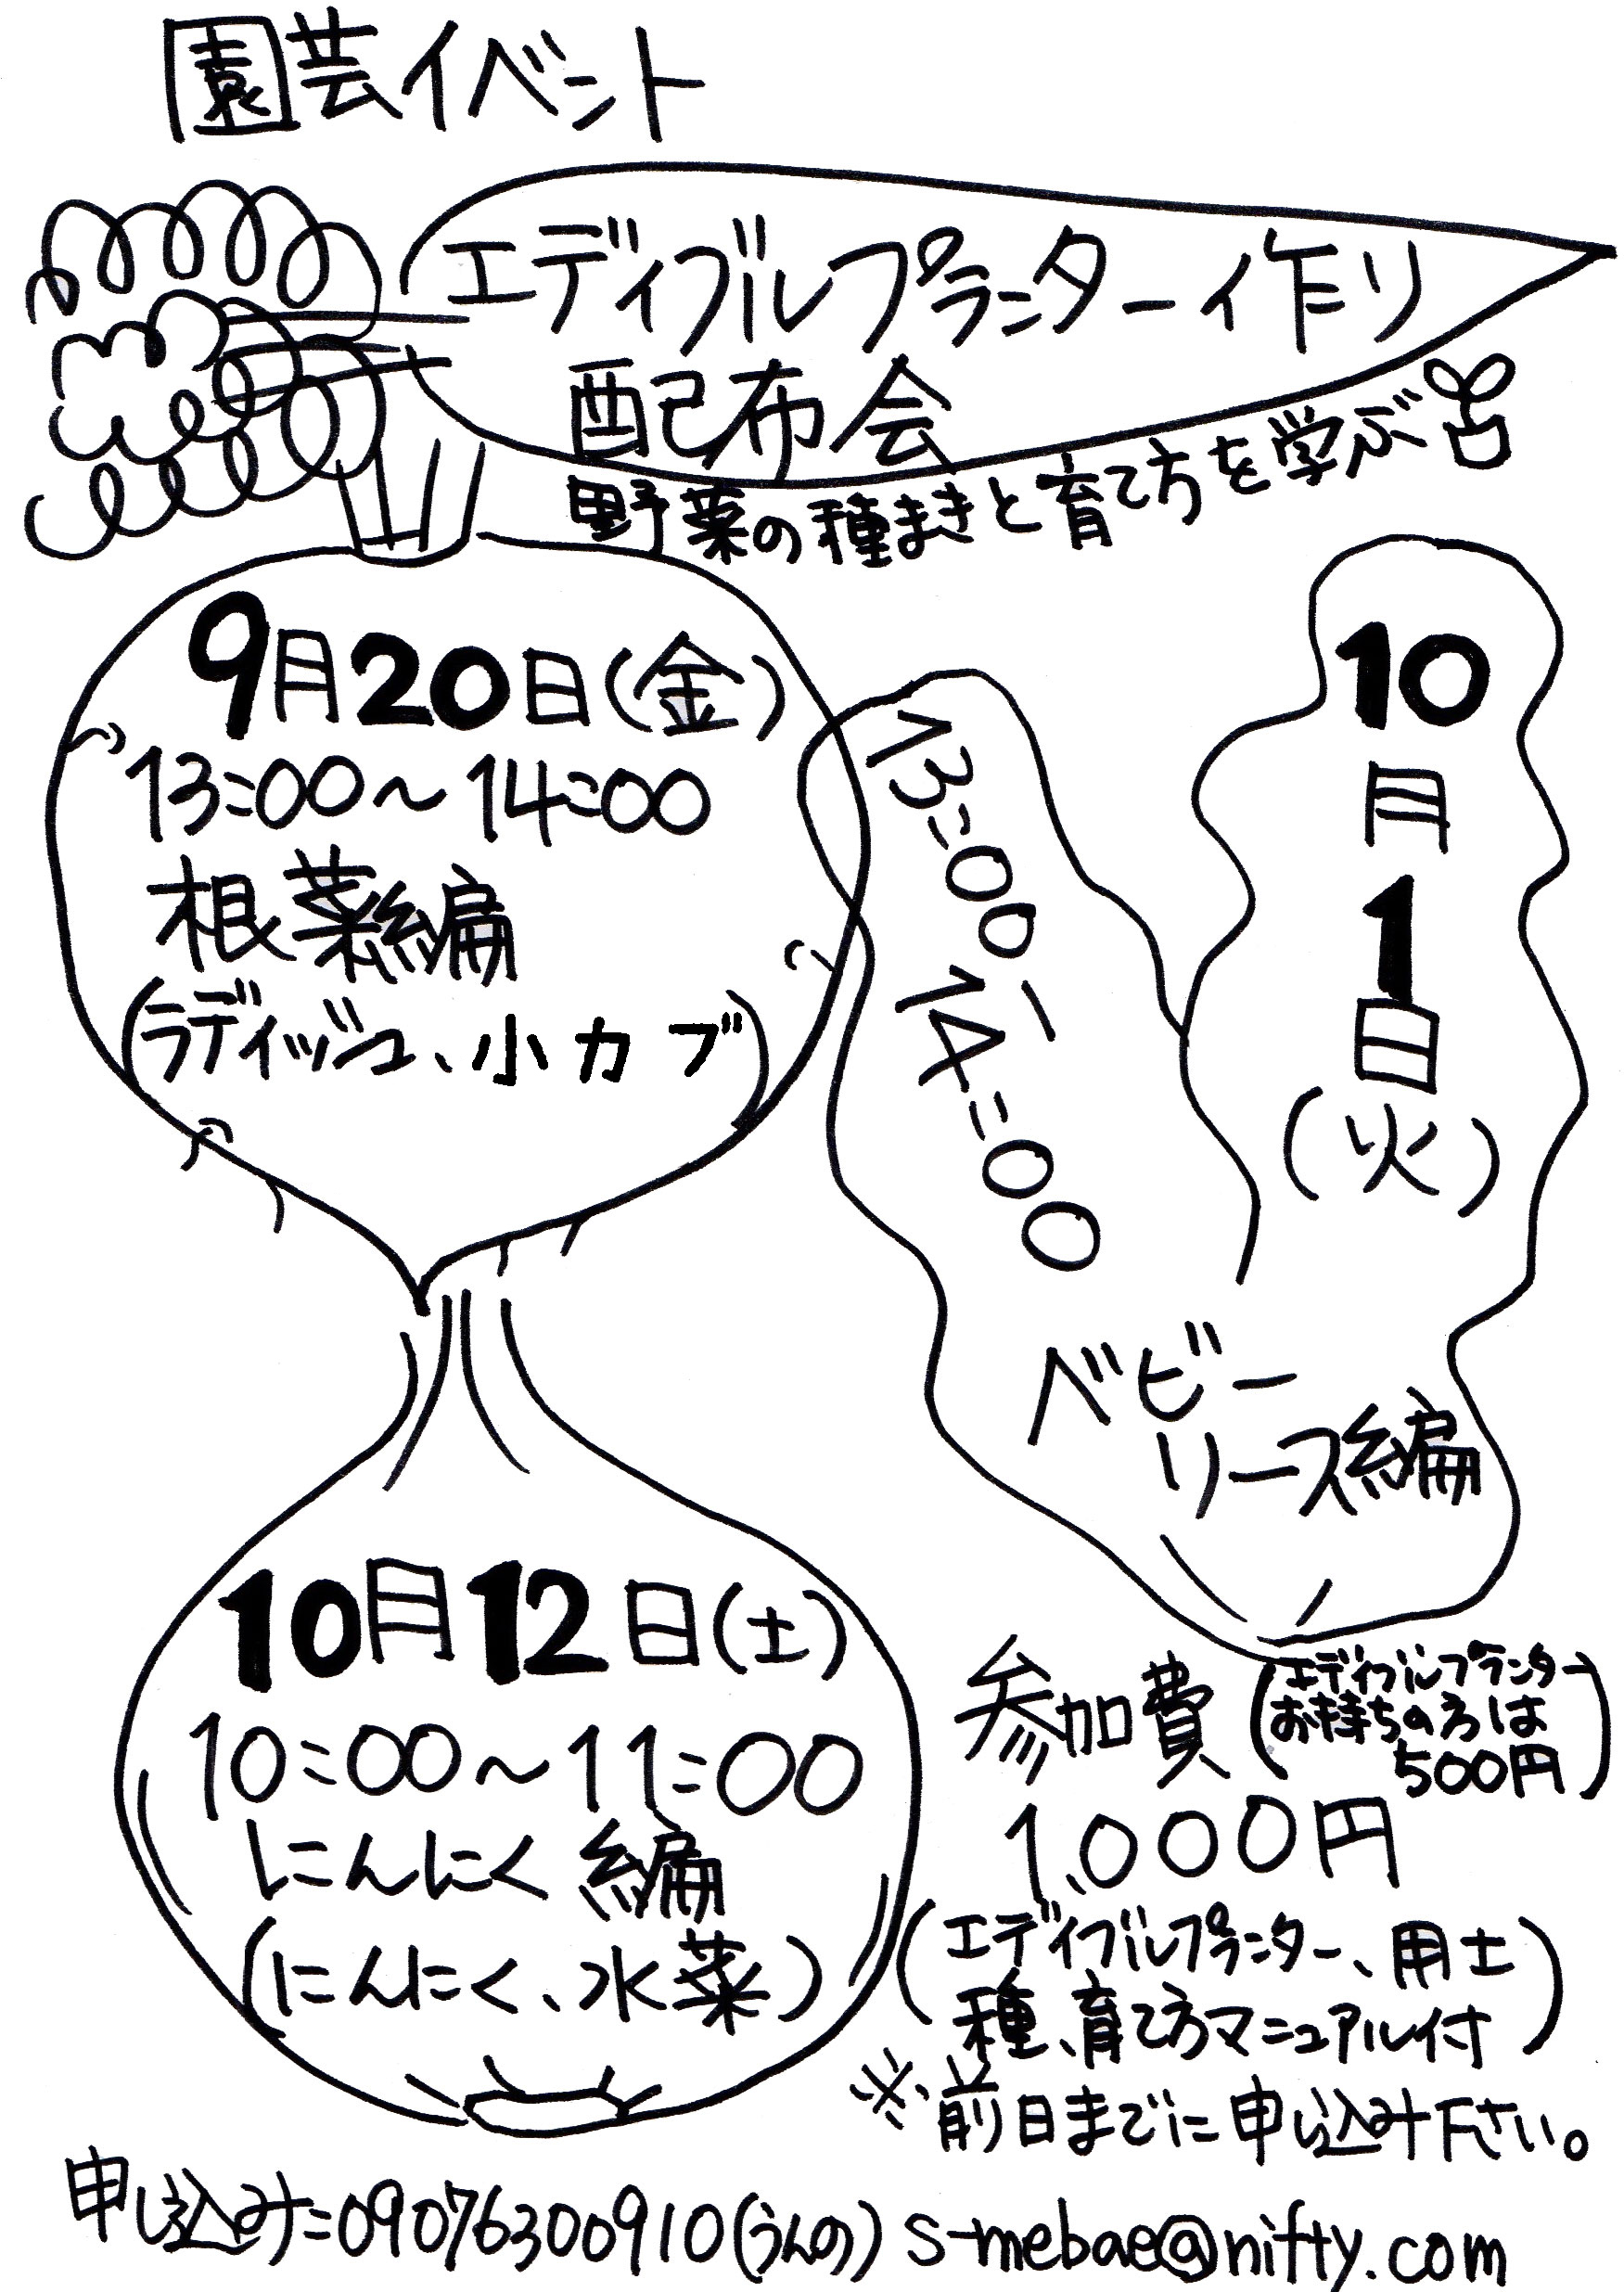 園芸イベント
エディブルプランター作り
配布会
野菜の種まきと育て方を学ぶ
9月20日(金)
13:00〜14:00
根菜編
(ラディッシュ、小カブ)
10月1日(火)
13:00-14:00
ベビー
リース編
10月12日(土)
10:00〜11:00
にんにく編
(にんにく、水菜)
参加費
(エディブルプランター
お持ちの方は
500円)
1,000円
(エディブルプランター、用土
種、育て方マニュアル付)
※前日までに申し込み下さい。
申し込み:09076300910(うんの) s-mebae@nifty.com